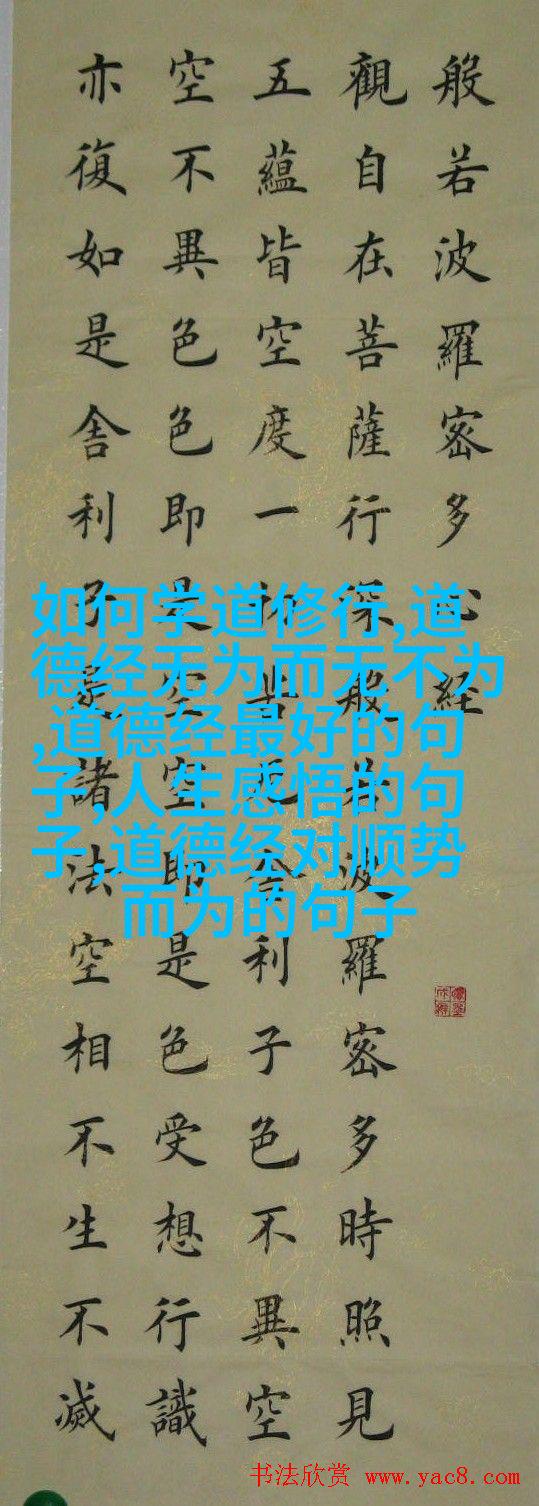 般若波羅密多心経
觀自在菩薩行深般若波羅密多時照見
五蘊皆空度一切苦厄舍利子色不異空
空不異色色即是空空即是色受想行識
亦復如是舍利子是諸法空相不生不滅
如何学道修行,道
德经无为而无不为
,道德经最好的句
子,人生感悟的句
子,道德经对顺势
而为的句子
书法欣赏 www.yac8.com